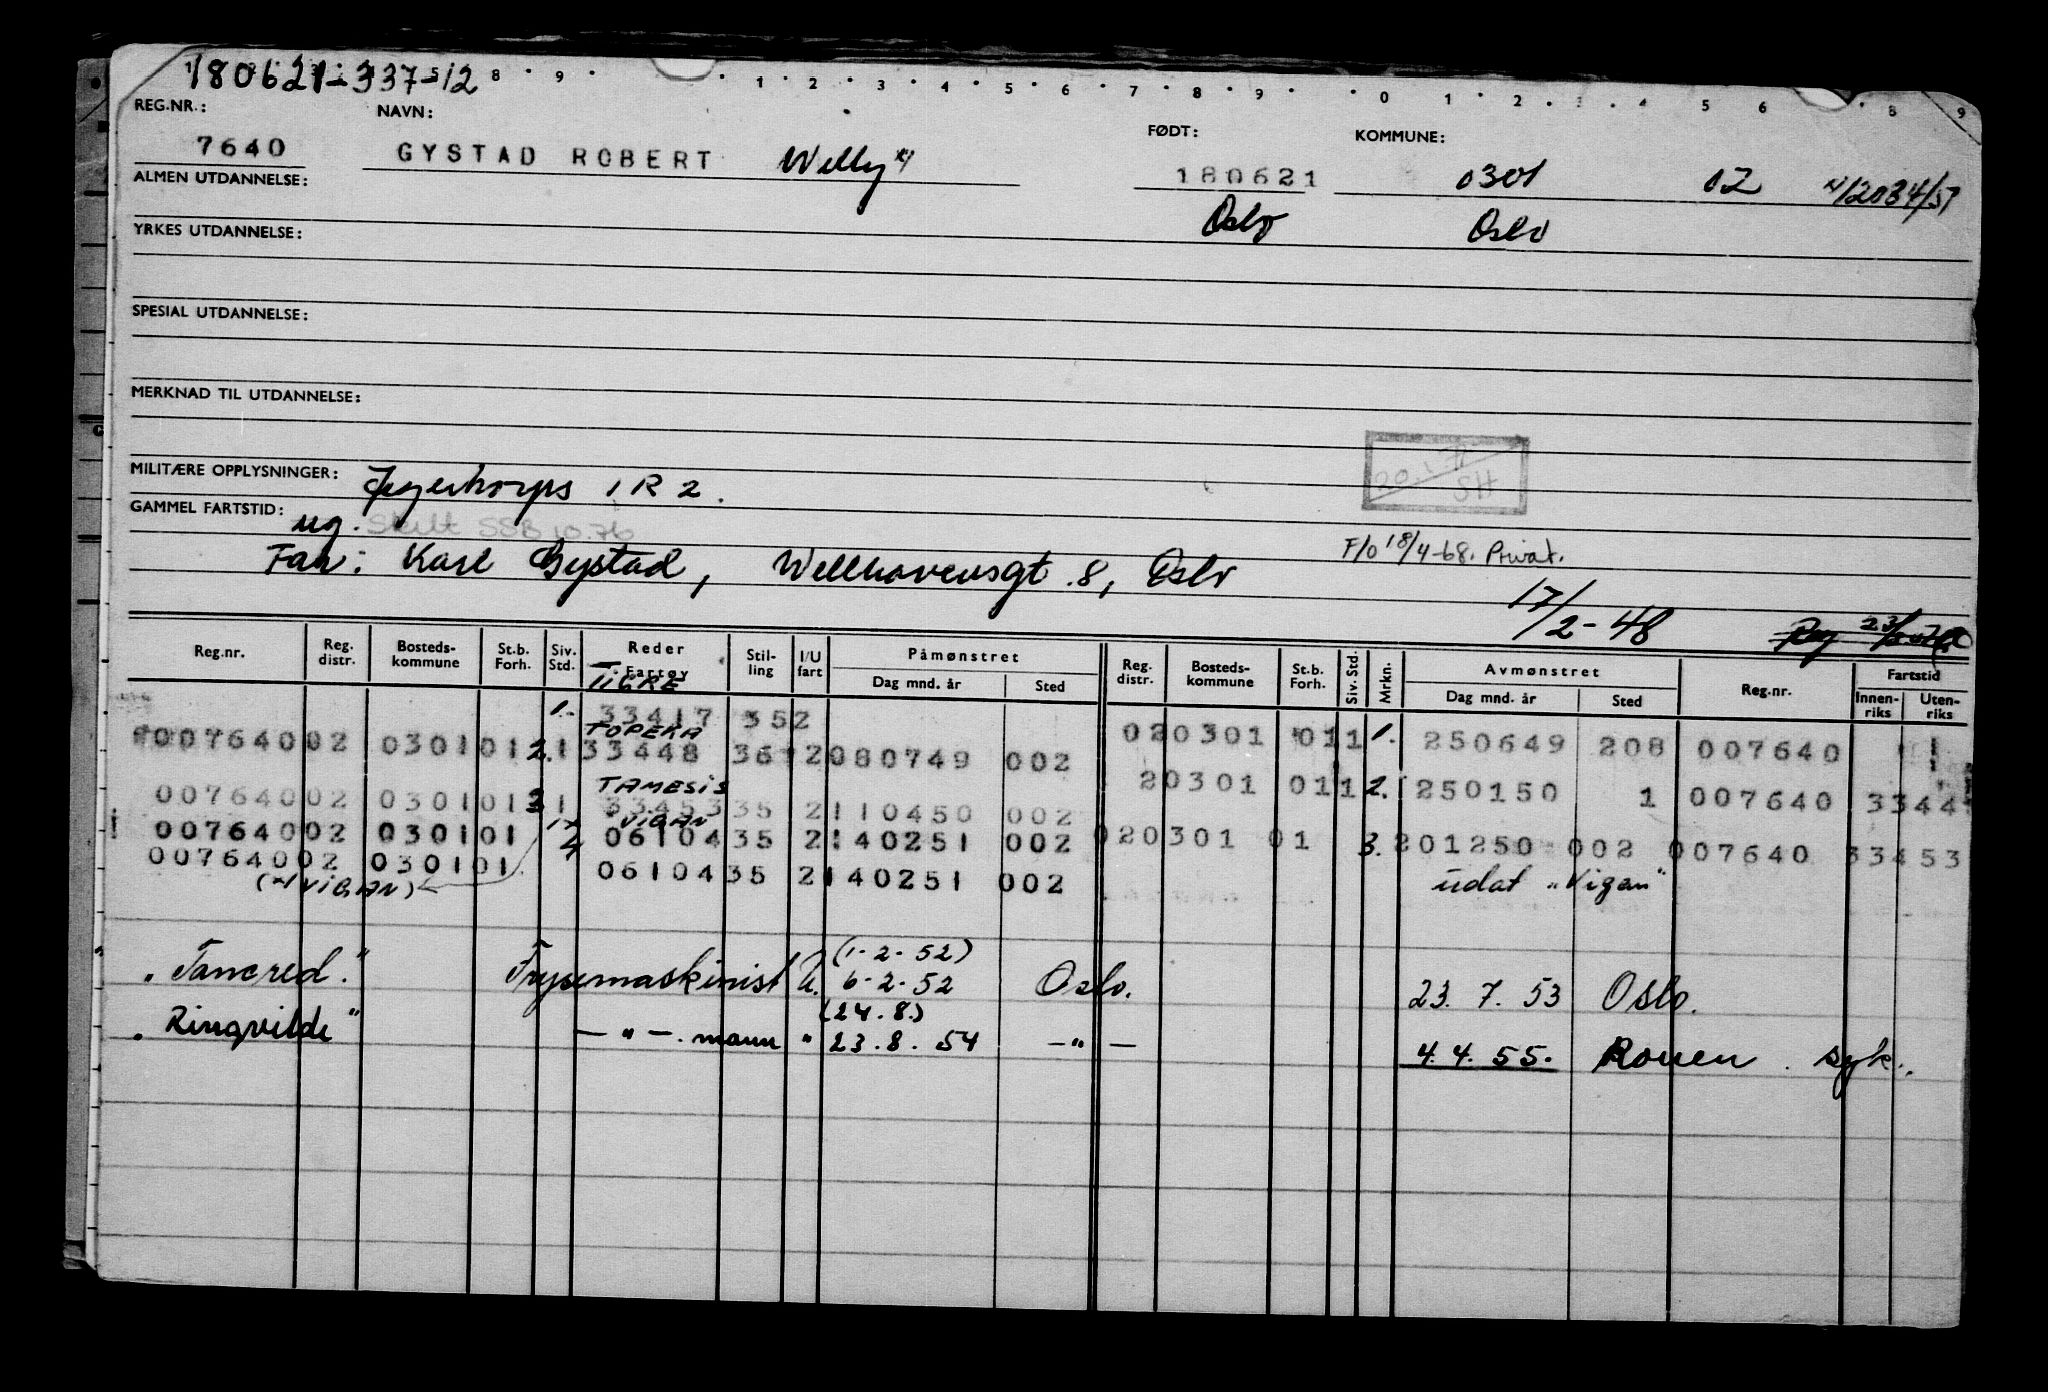 180621-33712
8 9 1 2 3 4 5 6 7 8 9 0 1 2 3 4 5 6 8 9
REG.NR.: NAVN: FØDT: KOMMUNE:
7640 GYSTAD ROBERT Willy x) 180621 0301 02 x) 12084/57
ALMEN UTDANNELSE: Oslo Oslo
YRKES UTDANNELSE:
SPESIAL UTDANNELSE:
MERKNAD TIL UTDANNELSE:
MILITÆRE OPPLYSNINGER: Jegerkorps IR 2.
SH
GAMMEL FARTSTID: ug. Skilt SSB 10.76
F/O 18/4-68. Privat.
Far: Karl Gystad, Welhavensgt. 8, Oslo
17/2-48
Reg.nr. Reg. distr. Bosteds- kommune St.b. Forh. Siv. Std. Reder Fartøy Stil- ling I/U fart Påmønstret Dag mnd. år Sted Reg. distr. Bosteds- kommune St.b. Forh. Siv. Std. Mrkn. Avmønstret Dag mnd. år Sted Reg.nr. Fartstid Innen- riks Uten- riks
TIGRE
1. 33417 352 020301 011 1. 250649 208 007640
TOPEKA
00764002 0301012. 1 33448 361 2 080749 002 20301 011 2. 250150 1 007640 3344
TAMESIS
00764002 030101 3 1 33453 35 2 110450 002 020301 01 3. 201250 002 007640 33453
VIGAN
00764002 030101 4 06104 35 2 140251 002
00764002 030101 06104 35 2 140251 002 udat "Vigan"
(x) VIGAN)
(1-2-52)
"Tancred." Frysemaskinist U. 6-2-52 Oslo. 23. 7. 53 Oslo.
(24.8.)
"Ringvilde" — " —. mann " 23. 8. 54 — " — 4. 4. 55. Rouen. syk.